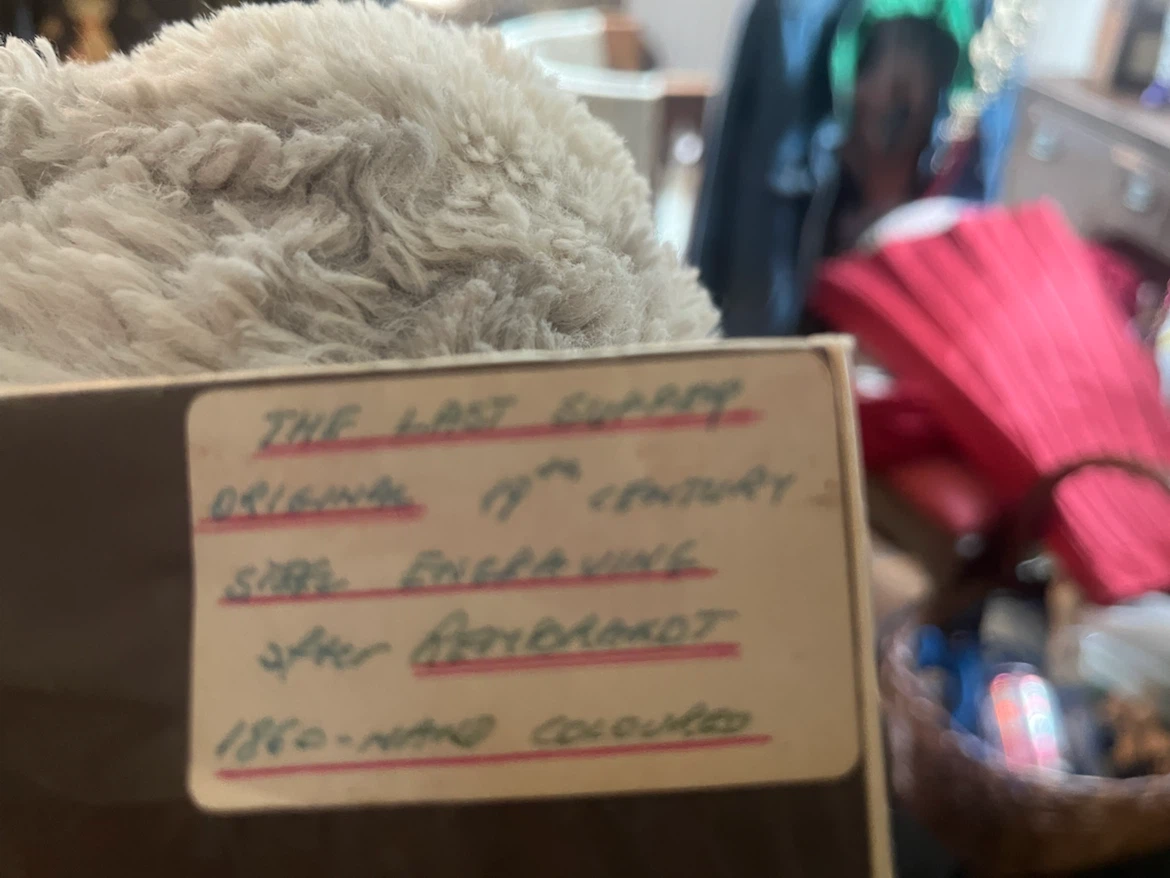 THE LAST SUPPER
ORIGINAL 19th CENTURY
STEEL ENGRAVING
after REMBRANDT
1860-HAND COLOURED